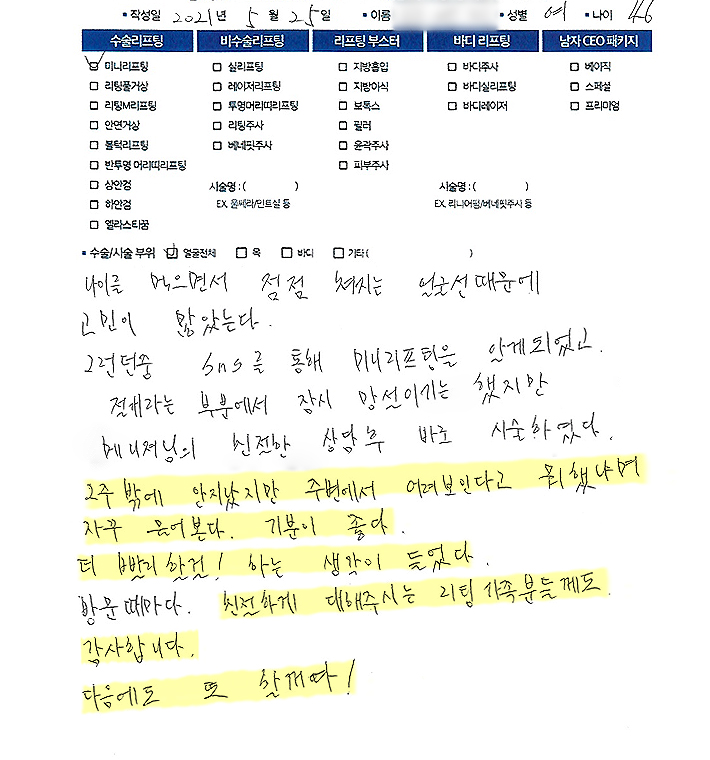 • 작성일 2021년 5월 25일 • 이름 • 성별 여 • 나이 46
수술리프팅 비수술리프팅 리프팅 부스터 바디 리프팅 남자 CEO 패키지
미니리프팅 실리프팅 지방흡입 바디주사 베이직
리팅풀거상 레이저리프팅 지방이식 바디실리프팅 스페셜
리팅M리프팅 투명머리띠리프팅 보톡스 바디레이저 프리미엄
안면거상 리팅주사 필러
볼턱리프팅 베네핏주사 윤곽주사
반투명 머리띠리프팅 피부주사
상안검 시술명 : ( ) 시술명 : ( )
하안검 EX. 울쎄라/민트실 등 EX. 리니어펌/베네핏주사 등
엘라스티꿈
• 수술/시술 부위 얼굴전체 목 바디 기타 ( )
나이를 먹으면서 점점 쳐지는 얼굴선때문에
고민이 많았는다.
그런던중 sns를 통해 미니리프팅을 알게되었고.
절개라는 부분에서 잠시 망설이기는 했지만
매니져님의 친절한 상담후 바로 시술하였다.
2주밖에 안지났지만 주변에서 어려보인다고 뭐했냐며
자꾸 물어본다. 기분이 좋다.
더 빨리할걸! 하는 생각이 들었다.
방문때마다. 친절하게 대해주시는 리팅가족분들께도.
감사합니다.
다음에도 또 할꺼다!